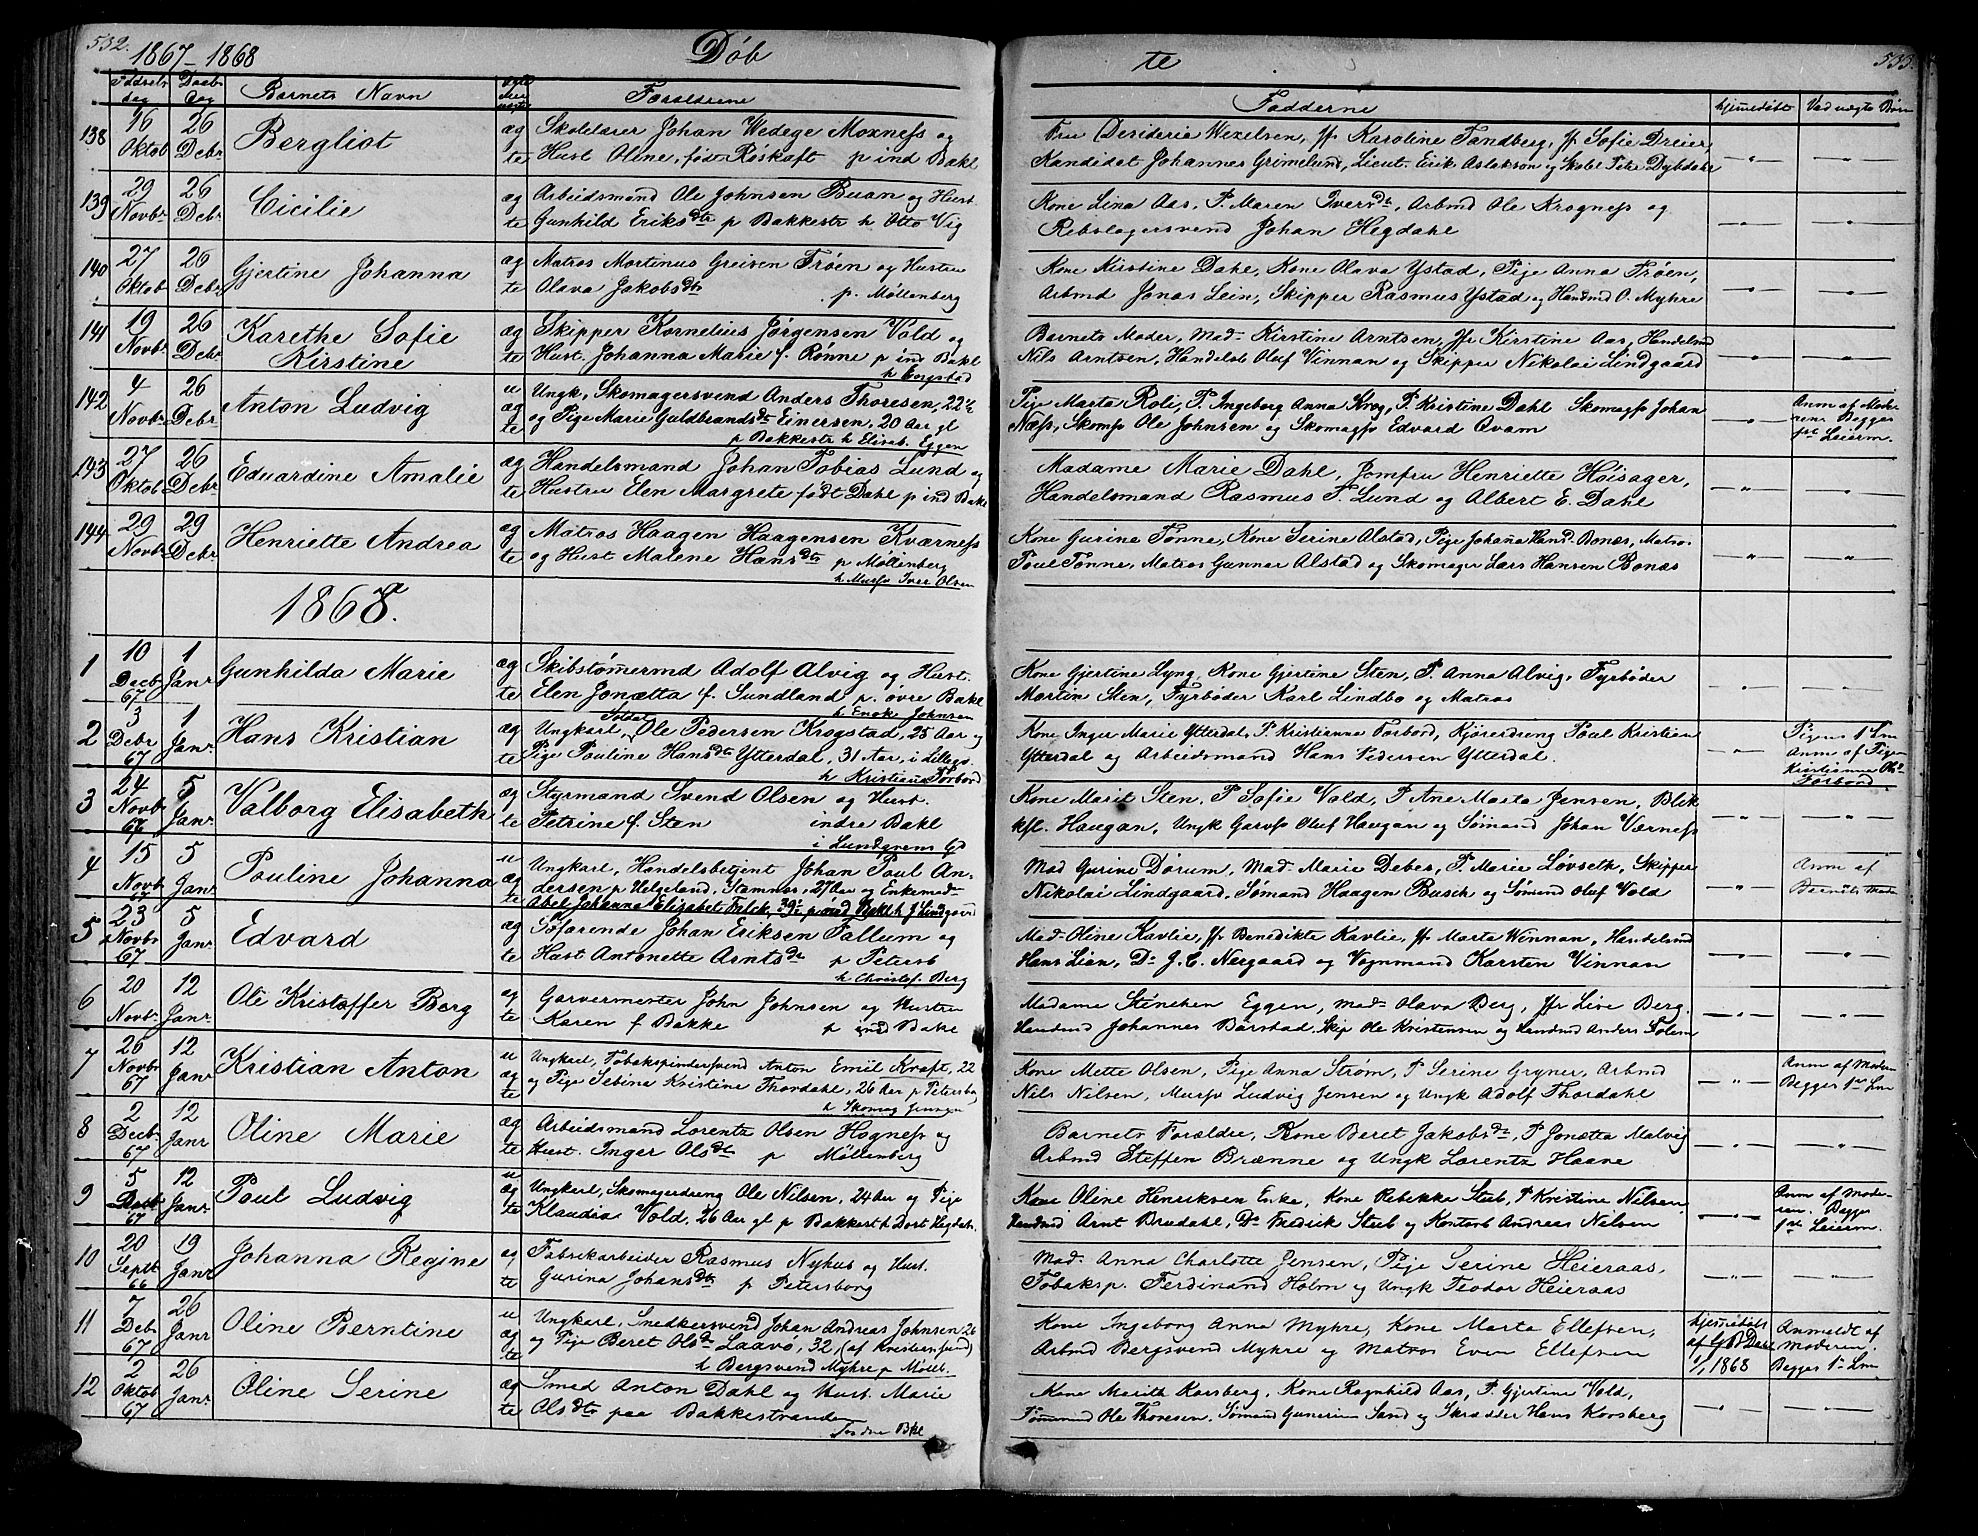 532.
1867-1868
Döb
Fødsels dag
Daab Dag
Barnets Navn
Forældrene
138
16 Oktob
26 Debr
Bergliot
ægte
Skolelærer Johan Wedege Moxness og
Hust Oline, født Röskaft p ind Bakl
139
29 Novbr
26 Debr
Cicilie
ægte
Arbeidsmand Ole Johnsen Buan og Hust
Gunhild Eriksdtr p Bakkestr h Otto Vig
140
27 Oktob
26 Debr
Gjertine Johanna
ægte
Matros Mortinus Greisen Tröen og Hustru
Olava Jakobsdtr p. Möllenberg
141
19 Novbr
26 Debr
Karethe Sofie
Kirstine
ægte
Skipper Kornelius Jörgensen Vold og
Hust. Johanna Marie f. Rönne p ind Bakl
h Engstad
142
4 Novbr
26 Debr
Anton Ludvig
uægte
Ungk, Skomagersvend Anders Thoresen, 22½
og Pige Marie Guldbrandsdt Einersen, 20 Aar gl
p Bakkestr h Elisab. Eggen
143
27 Oktob
26 Debr
Eduardine Amalie
ægte
Handelsmand Johan Tobias Lund og
Hustru Elen Margrete født Dahl p ind Bakl
144
29 Novbr
29 Debr
Henriette Andrea
ægte
Matros Haagen Haagensen Kværness
og Hust Malene Hansdtr p Möllenberg
h Murss Iver Olsen
1868.
1
10 Decb 67
1 Janr
Gunhilda Marie
ægte
Skibstömermd Adolf Alvig og Hust.
Elen Jonætta f. Sundland p. övre Bakl
h Enok Johnsen
2
3 Debr 67
1 Janr
Hans Kristian
ægte
Ungkarl Soldat Ole Pedersen Krogstad, 25 Aar og
Pige Pauline Hansdtr Ytterdal, 31 Aar, i Lillegs
h Kristiana Forbord
3
24 Novb 67
5 Janr
Valborg Elisabeth
ægte
Styrmand Svend Olsen og Hust.
Petrine f. Sten indre Bakl
i Lundgrens Gd
4
15 Novb 67
5 Janr
Pauline Johanna
uægte
Ungkarl, Handelsbetjent Johan Paul An-
dersen p Helgeland, Stamnes, 27 Aar og Enkemad-
Abel Johanna Elizabet Falck, 39 p ind Bakl h J Lindgaard
5
23 Novbr 67
5 Janr
Edvard
ægte
Söfarende Johan Eriksen Fallum og
Hust Antonette Arntsdtr p Petersb
h Christof. Berg
6
20 Novbr
12 Janr
Ole Kristoffer Berg
ægte
Garvermester John Johnsen og Hustru
Karen f Bakke p ind Bakl
7
26 Novbr 67
12 Janr
Kristian Anton
uægte
Ungkarl, Tobakspindersvend Anton Emil Kraft, 22
og Pige Sebina Kristine Thordahl, 26 Aar p Petersborg
h Skomag Jensen
8
2 Decb 67
12 Janr
Oline Marie
ægte
Arbeidsmand Lorentz Olsen Hogness og
Hust. Inger Olsdtr p Möllenberg
9
5 Decb 67
12 Janr
Paul Ludvig
uægte
Ungkarl, Skomagerdreng Ole Nilsen, 24 Aar og Pige
Klaudia Vold, 26 Aar gl p Bakkestr h Dort Hegdahl
10
20 Septb 66
19 Janr
Johanna Regine
ægte
Fabrikarbeider Rasmus Nyhus og Hust.
Gurina Johansdtr p Petersborg
11
7 Deb 67
26 Janr
Oline Berntine
uægte
Ungkarl, Snedkersvend Johan Andreas Johnsen 26
og Pige Beret Olsdtr Laavö, 32, (af Kristiansund)
h Bergsvend Myhre p Möllb.
12
2 Oktob 67
26 Janr
Oline Serine
ægte
Smed Anton Dahl og Hust. Marie
Olsdtr paa Bakkestranden
533.
te
Fadderne
hjemedöbt
Ved uægte Börn
Fru Desideria Wexelsen, Jfr Karoline Tandberg, Jfr Sofie Dreier
Kandidat Johannes Grimelund, Lieut. Erik Aslakson og Skolel Peter Dybdahl
Kone Lina Aas, P. Maren Iversdt, Arbmd Ole Krogness og
Rebslagersvend Johan Hegdahl
Kone Kirstine Dahl, Kone Olava Ystad, Pige Anna Tröen,
Arbmd Jonas Lein, Skipper Rasmus Ystad og Handmd O. Myhre
Barnets Moder, Mad- Kirstine Arntsen, Jfr Kirstine Aas, Handelsmd
Nils Arntsen, Handelsb Oluf Vinnan og Skipper Nikolai Lindgaard
Pige Marta Roli, P. Ingeborg Anna Krog, P. Kristine Dahl Skomagss Johan
Næss, Skomss Ole Johnsen og Skomagss Edvard Qvam
Anm af Mode-
rene Begges
1ste Leierm.
Madame Marie Dahl, Jomfru Henriette Höisager,
Handelsmand Rasmus F. Lund og Albert E. Dahl
Kone Gurine Tönne, Kone Serine Alstad, Pige Johana Hansd. Bonæs, Matro.
Poul Tönne, Matros Gunnar Alstad og Skomager Lars Hansen Bonæs
Kone Gjertine Lyng, Kone Gjertine Sten, P. Anna Alvig, Fyrböder
Martin Sten, Fyrböder Karl Lindbo og Matros
Kone Inger Marie Ytterdal, P Kristianna Forbord, Kjöredreng Poul Kristian
Ytterdal og Arbeidsmand Hans Pedersen Ytterdal.
Pigens 1ste Lm
Anm af Pigen
Kristianna Olsd
Forbord
Kone Marit Sten, P Sofie Vold, P Ane Marta Jensen, Blik
kfl. Haugan, Ungk Garvss Oluf Haugan og Sömand Johan Værness
Mad Gurine Dörum, Mad- Marie Debes, P. Marie Lövseth, Skipper
Nikolai Lindgaard, Sömand Haagen Busch og Sömand Oluf Vold
Anm af
Barnets Moder
Mad- Oline Kavlie, Jfr Benedikte Kavlie, Jfr Marta Winnan, Handelsmd
Hans Lian, Do J. C. Nergaard og Vognmand Karsten Vinnan
Madame Stinchen Eggen, Mad- Olava Berg, Jfr Live Berg.
Handmd Johannes Barstad, Skip Ole Kristensen og Handmd Anders Solem
Kone Mette Olsen, Pige Anna Ström, P Serine Gryner, Arbmd
Nils Nilsen, Murss Ludvig Jensen og Ungk Adolf Thordahl
Anm af Moderen
Begges 1ste Lm
Barnets Forældre, Kone Beret Jakobsdtr, P Jonætta Malvig
Arbmd Steffen Brænne og Ungk Lorentz Haave
Kone Oline Henriksen Enke, Kone Rebekka Stub, P Kristine Nilsen
Handmd Arnt Bredahl, Do Fredrik Stub og Kontorb Andreas Nilsen
Anm af Mode-
ren. Begges
1ste Leierm.
Mad. Anna Charlotte Jensen, Pige Serine Heieraas,
Tobaksp. Ferdinand Holm og Ungk Teodor Heieraas
Kone Ingeborg Anna Myhre, Kone Marta Ellefsen,
Arbmd Bergsvend Myhre og Matros Even Ellefsen
hjemedöbt
af G B Dahl
1/1 1868
Anmeldt af
Moderen.
Begges 1ste Lm
Kone Marith Korsberg, Kone Ragnhild Aas, P. Gjertine Vold,
Tömmmd Ole Thoresen, Sömand Gunerius Sand og Skrædder Hans Korsberg